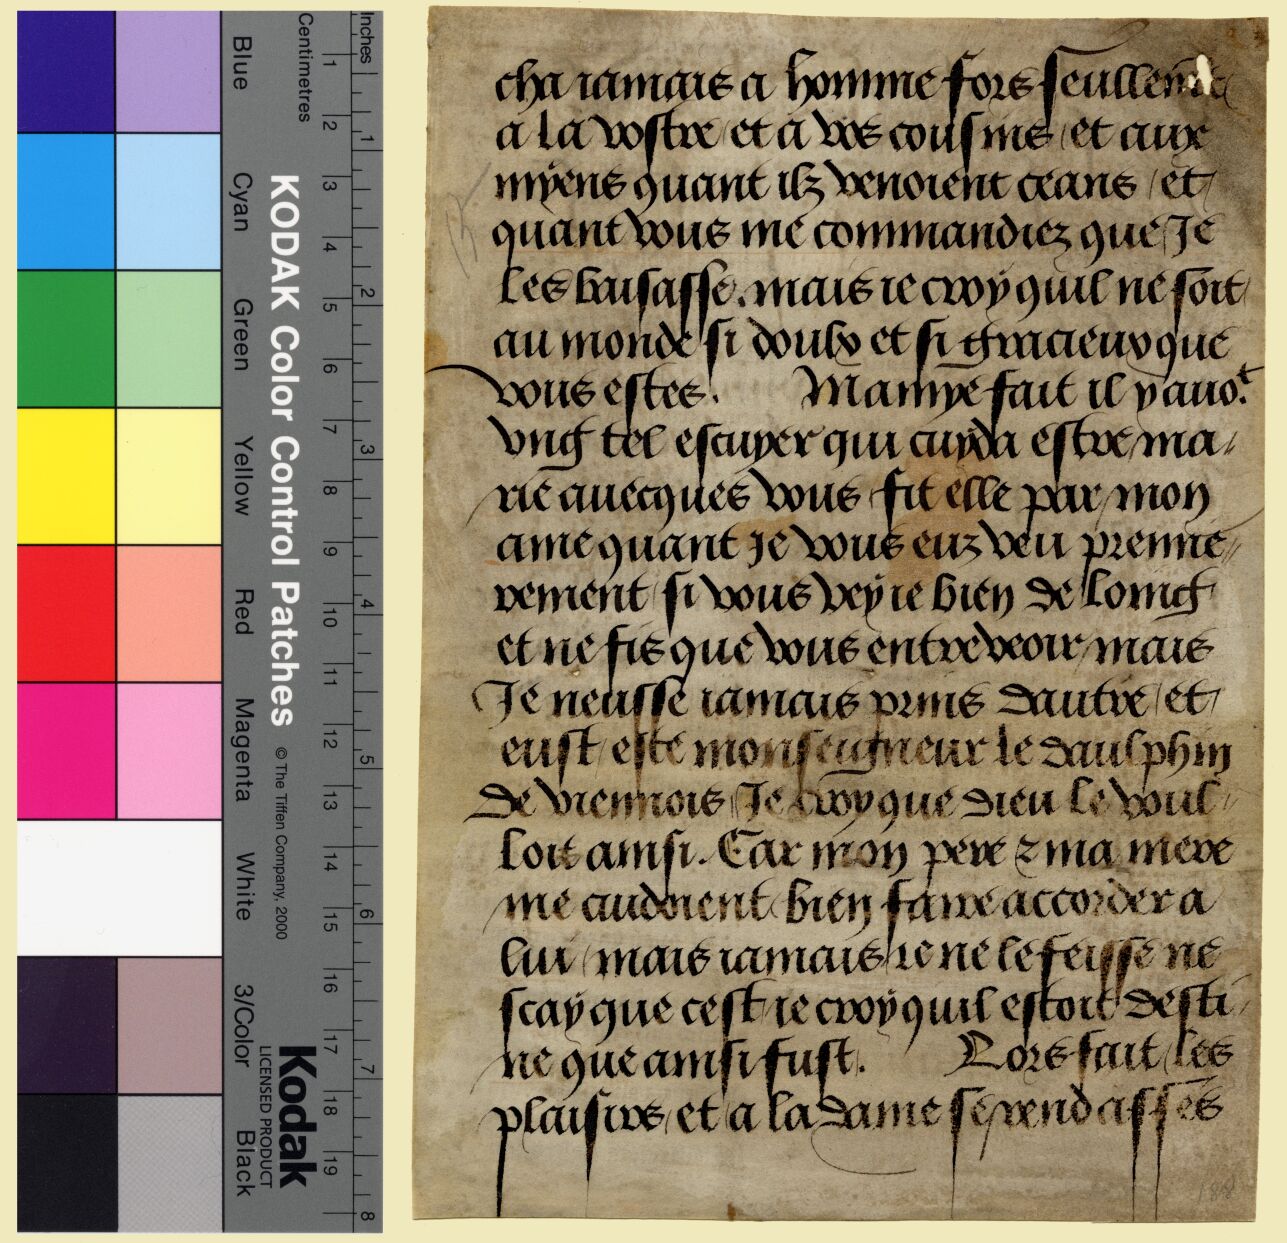 Inches
Centimetres
1 2 3 4 5 6 7 8 9 10 11 12 13 14 15 16 17 18 19
1 2 3 4 5 6 7 8
KODAK Color Control Patches © The Tiffen Company, 2000
Kodak
LICENSED PRODUCT
Blue Cyan Green Yellow Red Magenta White 3/Color Black
cha iamais a homme fors seullemt
a la vostre et a voz cousins et aux
myens quant ilz venoient ceans / et
quant vous me commandiez que Je
les baisasse. mais ie croy quil ne soit
au monde si doulx et si gracieux que
vous estes. Mamye fait il y auoit
vng tel escuyer qui cuyda estre ma
rie auecques vous fit elle par mon
ame quant Je vous euz veu premie
rement si vous vey ie bien de loing
et ne fis que vous entreveoir mais
Je neusse iamais prins dautre / et
eust este monseigneur le daulphin
de viennois Je croy que dieu le voul
loit ainsi. Car mon pere & ma mere
me cuidoient bien faire accorder a
lui / mais iamais ie ne le feisse ne
scay que cest ie croy quil estoit desti
ne que ainsi fust. Lors fait les
plaisirs et a la dame se rend asses
188